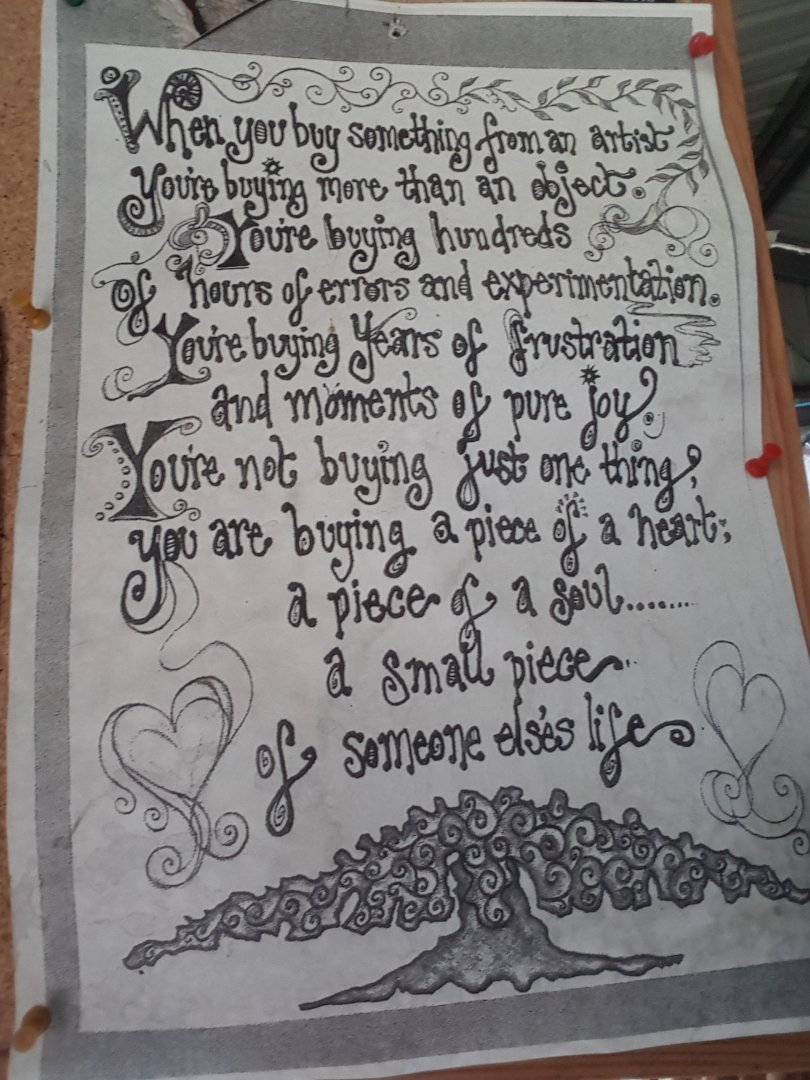 When you buy something from an artist
You're buying more than an object.
You're buying hundreds
of hours of errors and experimentation.
You're buying Years of frustration
and moments of pure joy.
You're not buying just one thing,
you are buying a piece of a heart,
a piece of a soul.......
a small piece
of someone else's life